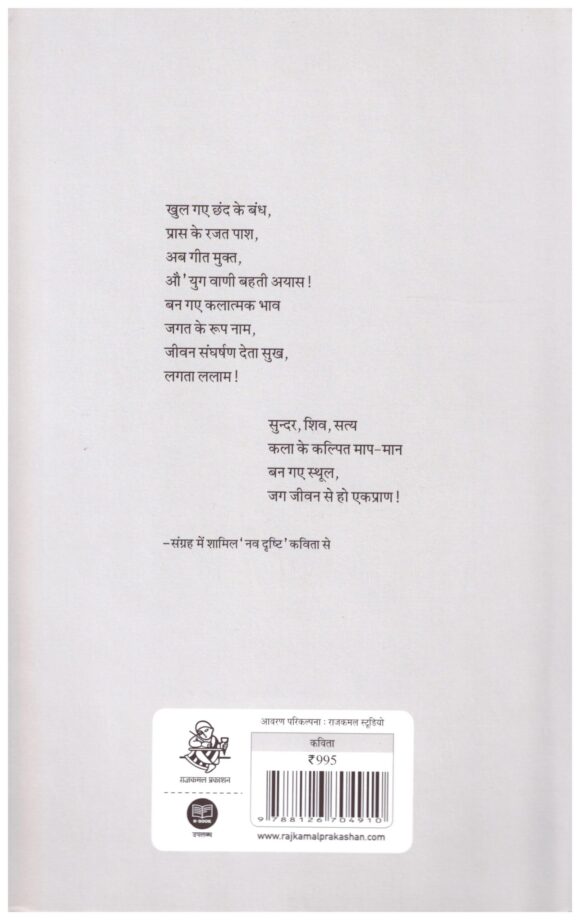 खुल गए छंद के बंध,
प्रास के रजत पाश,
अब गीत मुक्त,
औ' युग वाणी बहती अयास!
बन गए कलात्मक भाव
जगत के रूप नाम,
जीवन संघर्षण देता सुख,
लगता ललाम!
सुन्दर, शिव, सत्य
कला के कल्पित माप-मान
बन गए स्थूल,
जग जीवन से हो एकप्राण!
-संग्रह में शामिल 'नव दृष्टि' कविता से
आवरण परिकल्पना : राजकमल स्टूडियो
राजकमल प्रकाशन
कविता
₹995
9 788126 704910
E-BOOK
उपलब्ध
www.rajkamalprakashan.com